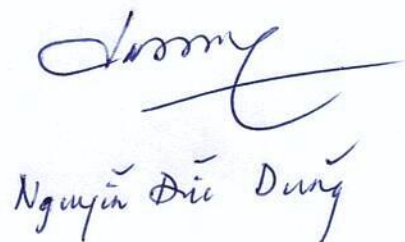 Nguyễn Đức Dũng